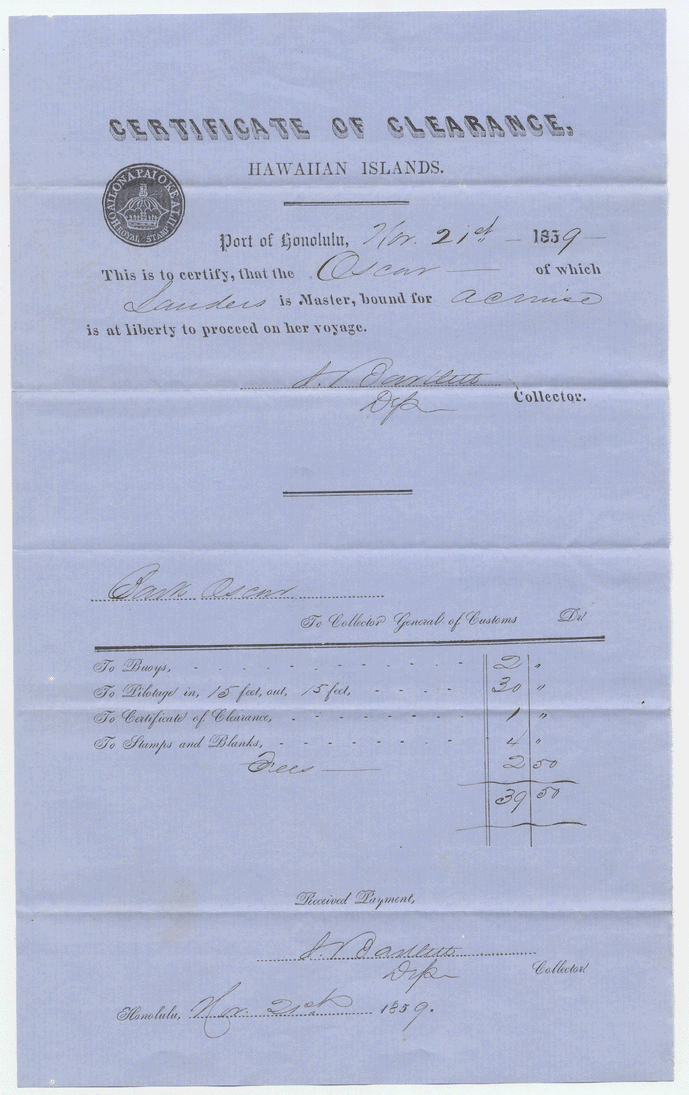 CERTIFICATE OF CLEARANCE,
HAWAIIAN ISLANDS.
HOAILONA PAI O KE ALII
ROYAL STAMP
Port of Honolulu, Nov. 21st — 1859 —
This is to certify, that the Oscar — of which
Landers is Master, bound for a cruise
is at liberty to proceed on her voyage.
Dep Collector.
Bark Oscar
To Collector General of Customs Dr
To Buoys, 2 "
To Pilotage in, 15 feet, out, 15 feet, 30 "
To Certificate of Clearance, 1 "
To Stamps and Blanks, 4 "
Fees — 2 50
39 50
Received Payment,
Dep Collector
Honolulu, Nov. 21st 1859.